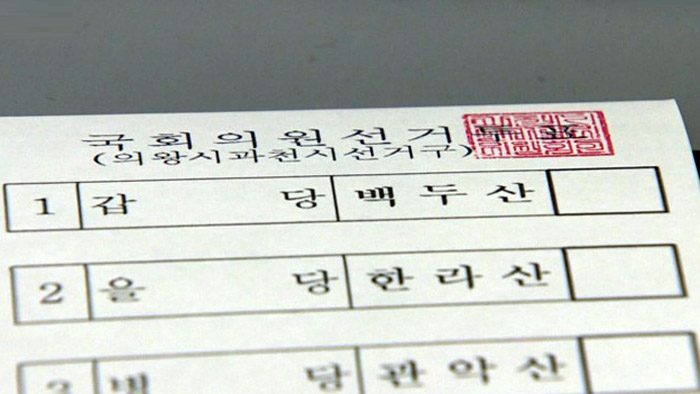 국회의원선거투표
(의왕시과천시선거구)
1 갑 당 백두산
2 을 당 한라산
3 병 당 관악산